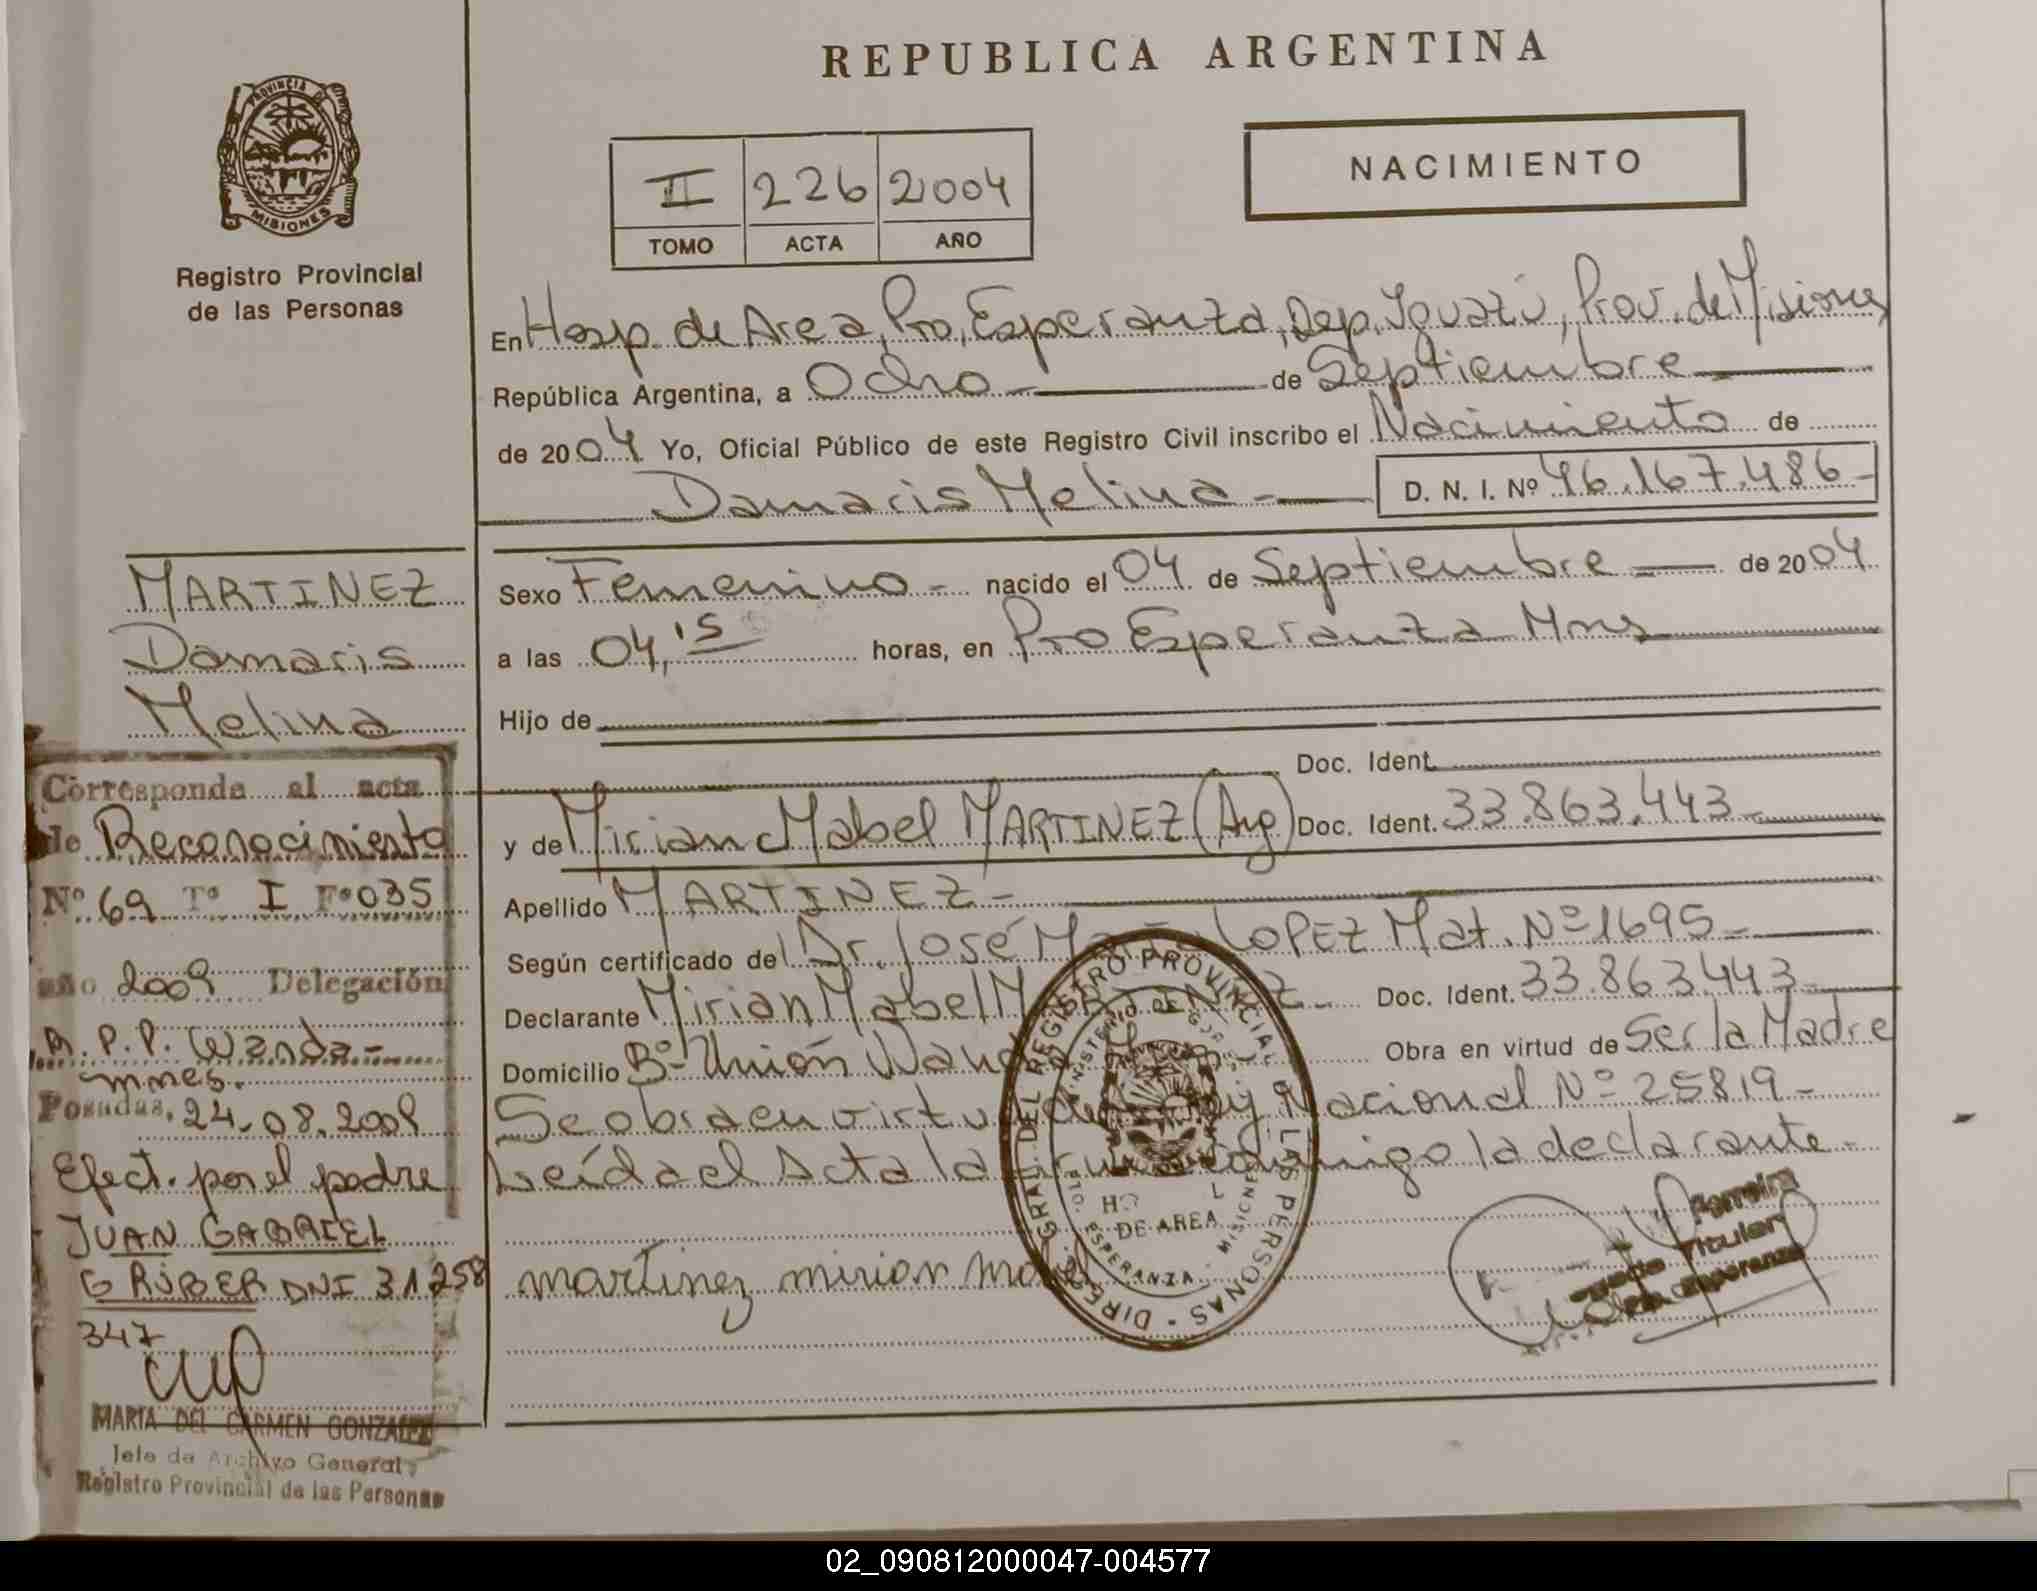 REPUBLICA ARGENTINA
PROVINCIA DE
MISIONES
Registro Provincial
de las Personas
II 226 2004
TOMO ACTA AÑO
NACIMIENTO
En Hosp. de Area, Pto, Esperanza, Dep. Iguazú, Prov. de Misiones
República Argentina, a Ocho de Septiembre
de 2004 Yo, Oficial Público de este Registro Civil inscribo el Nacimiento de
Damaris Melina
D. N. I. Nº 46.167.486
Sexo Femenino nacido el 04 de Septiembre de 2004
a las 04,15 horas, en Pto Esperanza Mnes
Hijo de
Doc. Ident.
y de Mirian Mabel MARTINEZ (Arg) Doc. Ident. 33.863.443
Apellido MARTINEZ
Según certificado del Dr. José María LOPEZ Mat. Nº 1695
Declarante Mirian Mabel Doc. Ident. 33.863.443
Domicilio Bº Unión Wanda Obra en virtud de Ser la Madre
Se obra en virtud de Ley Nacional Nº 25819
Leída el Acta la firma conmigo la declarante
martinez mirian mabel
DIREC. GRAL. DEL REGISTRO PROVINCIAL DE LAS PERSONAS
DE AREA
ESPERANZA - MISIONES
Ferreira
Titular
Esperanza
MARTINEZ
Damaris
Melina
Corresponde al acta
de Reconocimiento
Nº 69 Tº I Fº 035
año 2009 Delegación
R.P.P. Wanda
mnes.
Posadas, 24-08-2009
Efect. por el padre
JUAN GABRIEL
GRÜBER DNI 31258
347
MARIA DEL CARMEN GONZALEZ
Jefe de Archivo General
Registro Provincial de las Personas
02_090812000047-004577